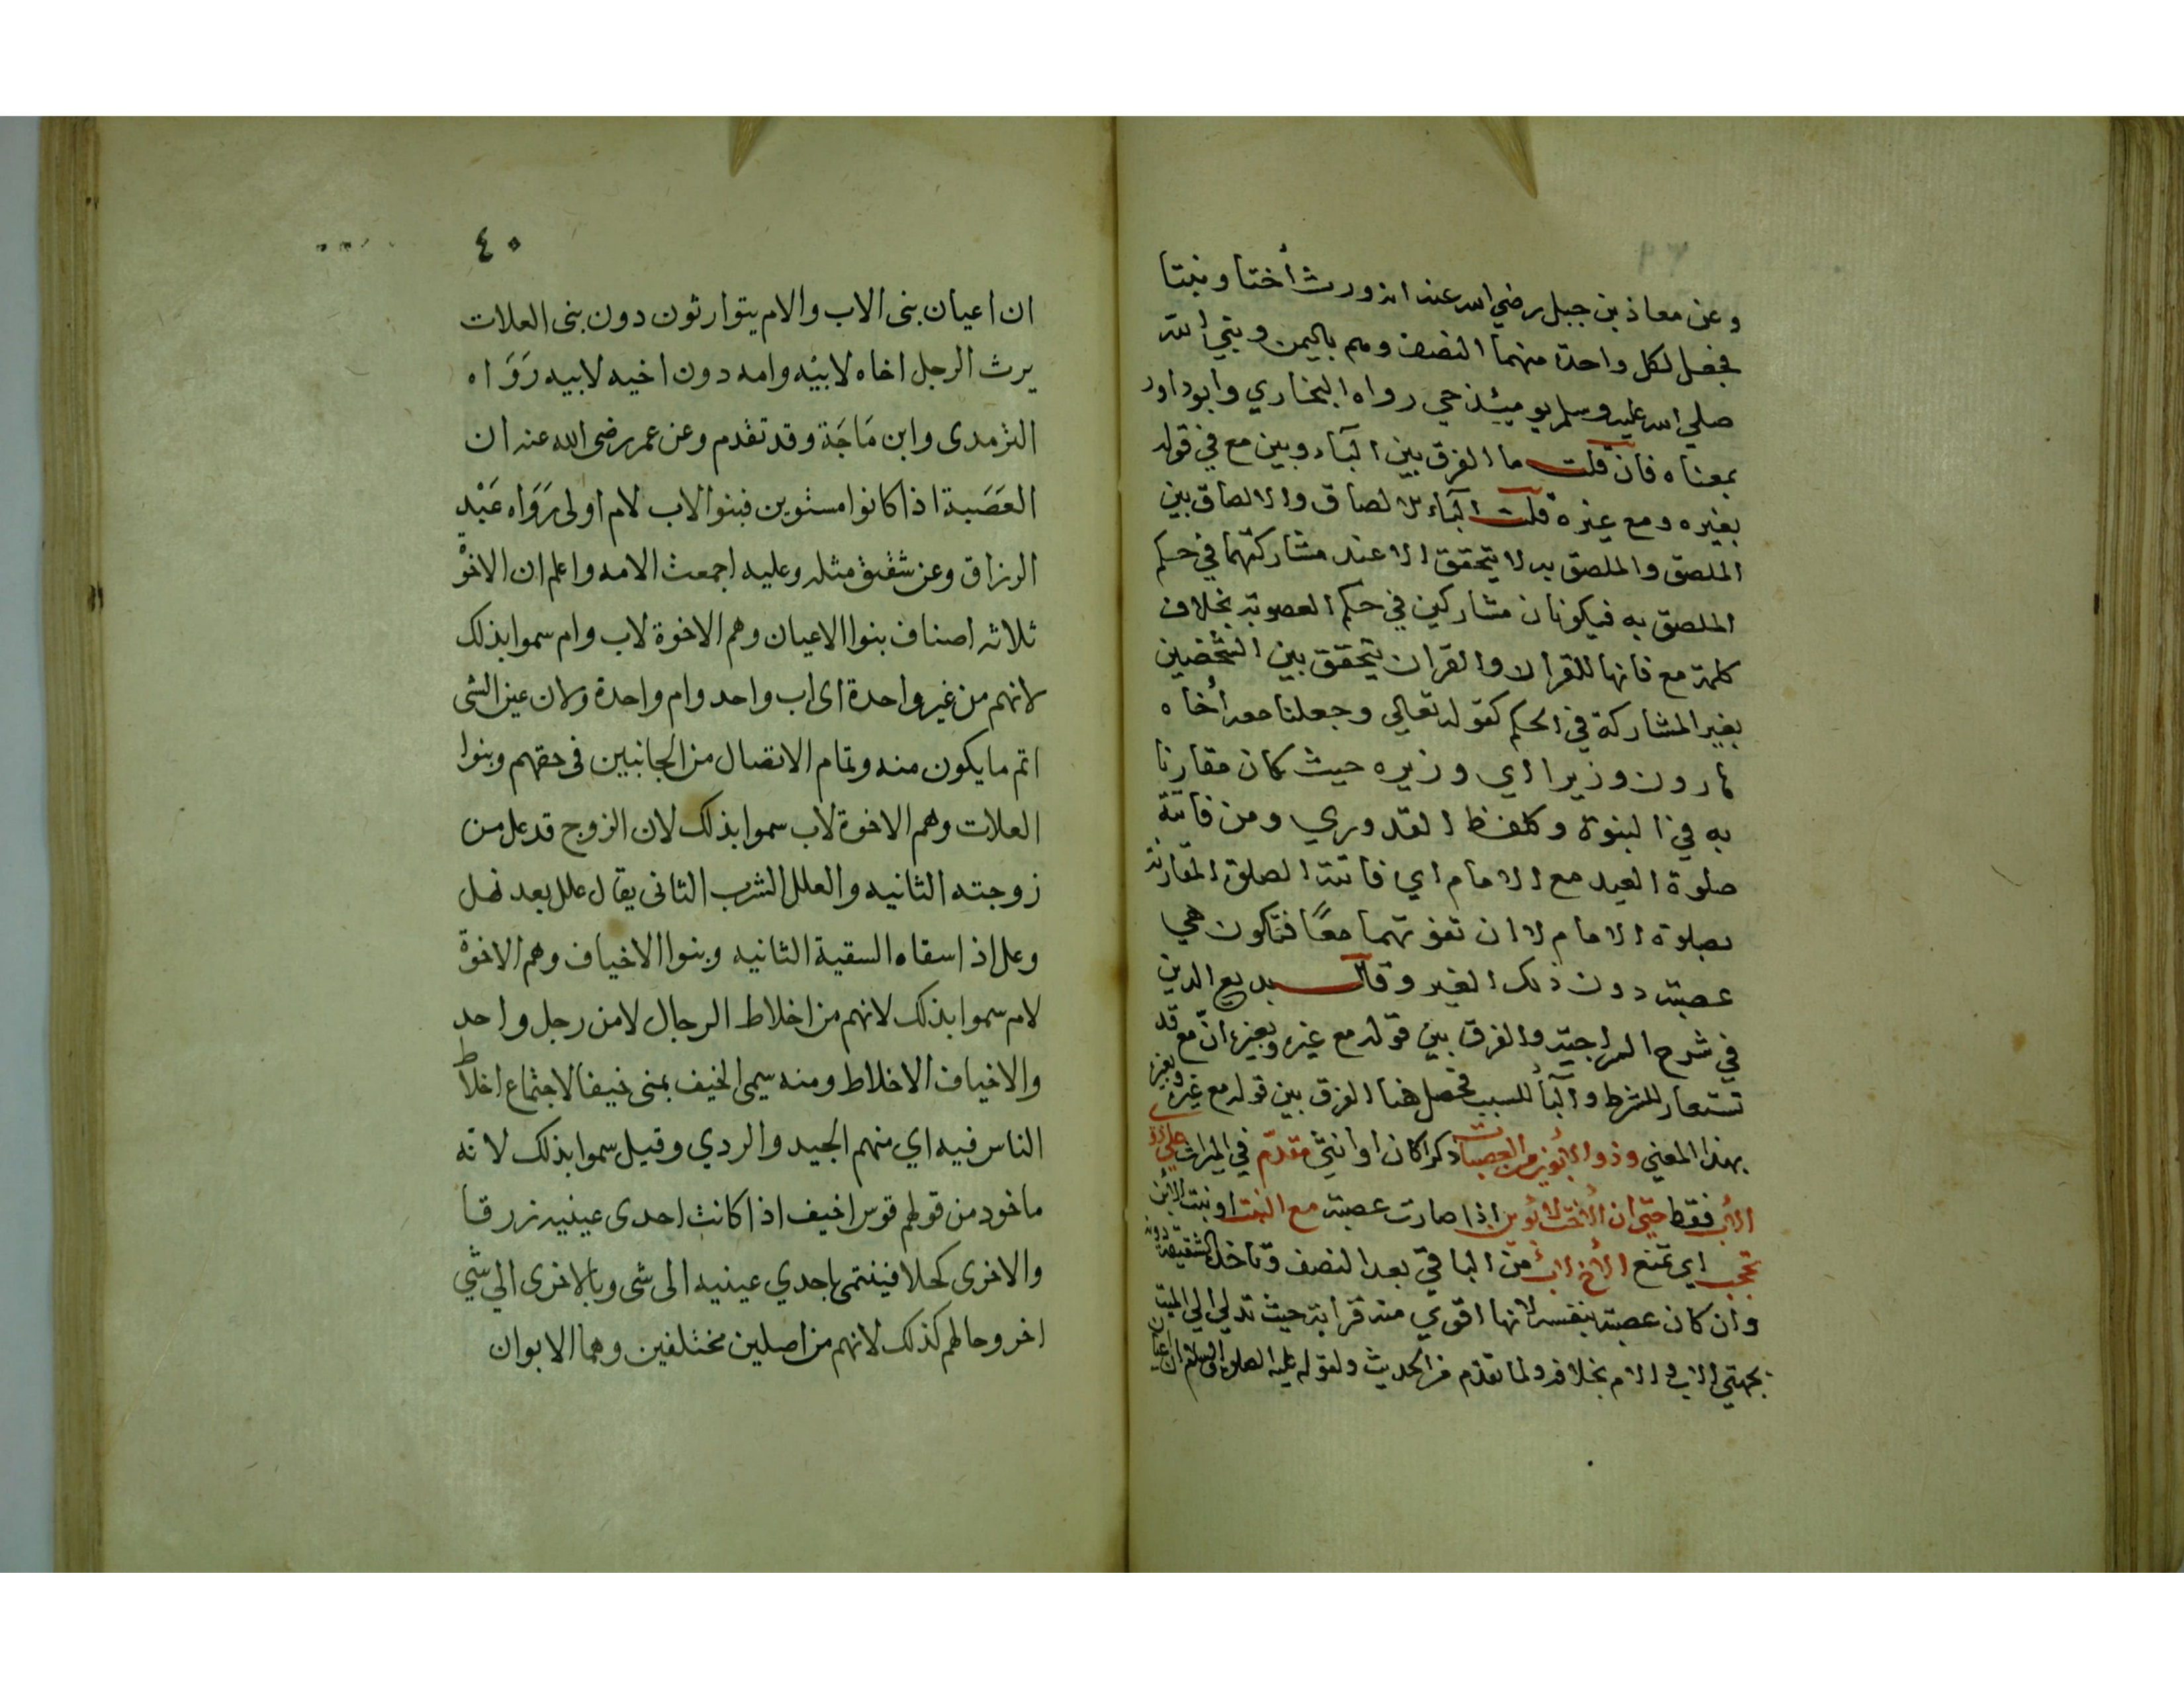 وعن معاذ بن جبل رضي الله عنه انه ورث أختا وبنتا
فجعل لكل واحدة منهما النصف وهم باليمن ونبي الله
صلي الله عليه وسلم يوميئذ حي رواه البخاري وابو داود
بمعناه فان قلت ما الفرق بين البآء وبين مع في قوله
بغيره ومع غيره قلت البآء للالصاق والالصاق بين
الملصق والملصق به لا يتحقق الا عند مشاركتهما في حكم
الملصق به فيكونان مشاركين في حكم العصوبة بخلاف
كلمة مع فانها للقران والقران يتحقق بين الشخصين
بغير المشاركة في الحكم كقوله تعالي وجعلنا معه أخاه
هارون وزيرا اي وزيره حيث كان مقارنا
به في النبوة وكلفظ القدوري ومن فاتته
صلوة العيد مع الامام اي فاتته الصلوة المقارنة
بصلوة الامام لا ان تفوتهما معًا فتكون هي
عصبة دون ذلك الغير وقال بديع الدين
في شرح السراجية والفرق بين قوله مع غيره وبغيره ان مع قد
تستعار للشرط والبآء للسبب فحصل هنا الفرق بين قوله مع غيره وبغيره
بهذا المعني وذوا الأبوين من العصبات ذكرا كان او انثي مقدّم في الميراث علي ذي
الأب فقط حتي ان الأخت لأبوين اذا صارت عصبة مع البنت او بنت الأبن
تحجب اي تمنع الأخ لأب من الباقي بعد النصف وتاخذه الشقيقة دونه
وان كان عصبة بنفسه لانها اقوي منه قرابة حيث تدلي الي الميت
بجهتي الاب والام بخلافه ولما تقدم من الحديث ولقوله عليه الصلوة والسلام ان اعيان
٤٠
ان اعيان بنى الاب والام يتوارثون دون بنى العلات
يرث الرجل اخاه لابيه وامه دون اخيه لابيه رَوَاه
الترمدى وابن مَاجَة وقد تقدم وعن عمر رضى الله عنه ان
العَصَبة اذا كانوا مستوين فبنوا الاب لام اولى رَوَاه عَبْد
الرزاق وعن شقيق مثله وعليه اجمعت الامه واعلم ان الاخوْ
ثلاثه اصناف بنوا الاعيان وهم الاخوة لاب وام سموا بذلك
لانهم من غير واحدة اى اب واحد وام واحدة ولان عين الشى
اتم ما يكون منه وتمام الاتصال من الجانبين فى حقهم وبنوا
العلات وهم الاخوة لاب سموا بذلك لان الزوج قد عل من
زوجته الثانيه والعلل الشرب الثانى يقال علل بعد نهل
وعل اذ اسقاه السقية الثانيه وبنوا الاخياف وهم الاخوة
لام سموا بذلك لانهم من اخلاط الرجال لا من رجل واحد
والاخياف الاخلاط ومنه سمى الخيف بمنى خيفا لاجتماع اخلاط
الناس فيه اي منهم الجيد والردي وقيل سموا بذلك لانه
ماخود من قولهم قوس اخيف اذا كانت احدى عينيه زرقا
والاخرى كحلا فينتمى باحدي عينيه الى شى وبالاخرى الي شي
اخر وحالهم كذلك لانهم من اصلين مختلفين وهما الابوان